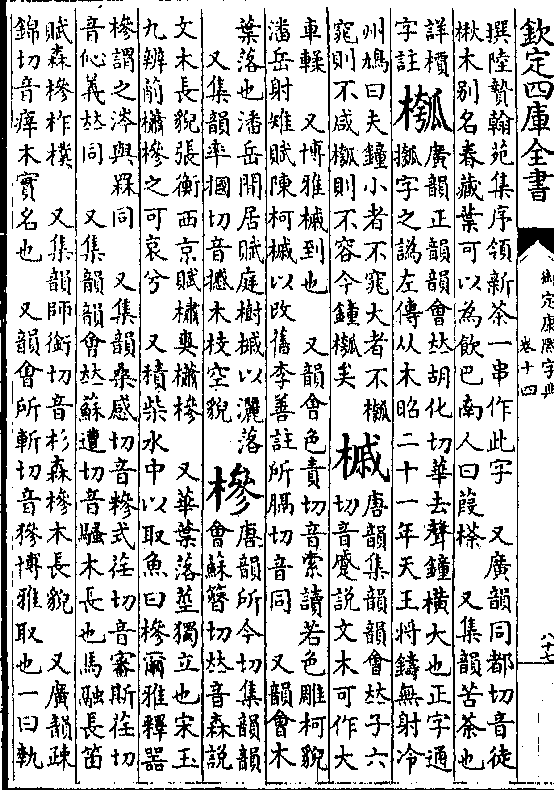 欽定四庫全書
御定康熙字典
卷十四
撰陸贄翰苑集序領新茶一串作此字 又廣韻同都切音徒
楸木别名春藏葉可以為飲巴南人曰葭𣘻 又集韻苦茶也
詳檟 槬 廣韻正韻韻會𠀤胡化切華去聲鐘横大也正字通
字註 摦字之譌左傳从木昭二十一年天王將鑄無射冷
州鳩曰夫鐘小者不窕大者不槬 槭 唐韻集韻韻會𠀤子六
窕則不咸槬則不容今鐘槬矣 切音蹙説文木可作大
車輮 又博雅槭到也 又韻會色責切音索讀若色雕柯貌
潘岳射雉賦陳柯槭以改舊李善註所隔切音同 又韻會木
葉落也潘岳閒居賦庭樹槭以灑落 槮 唐韻所今切集韻韻
又集韻率摑切音摵木枝空貌 會蘇簪切𠀤音森説
文木長貌張衡西京賦橚爽櫹槮 又華葉落莖獨立也宋玉
九辨前櫹槮之可哀兮 又積柴水中以取魚曰槮爾雅釋器
槮謂之涔與罧同 又集韻桑感切音糝式荏切音審斯荏切
音伈義𠀤同 又集韻韻會𠀤蘇遭切音騷木長也馬融長笛
賦森槮柞樸 又集韻師銜切音杉森槮木長貌 又廣韻疎
錦切音痒木實名也 又韻會所斬切音摻博雅取也一曰執